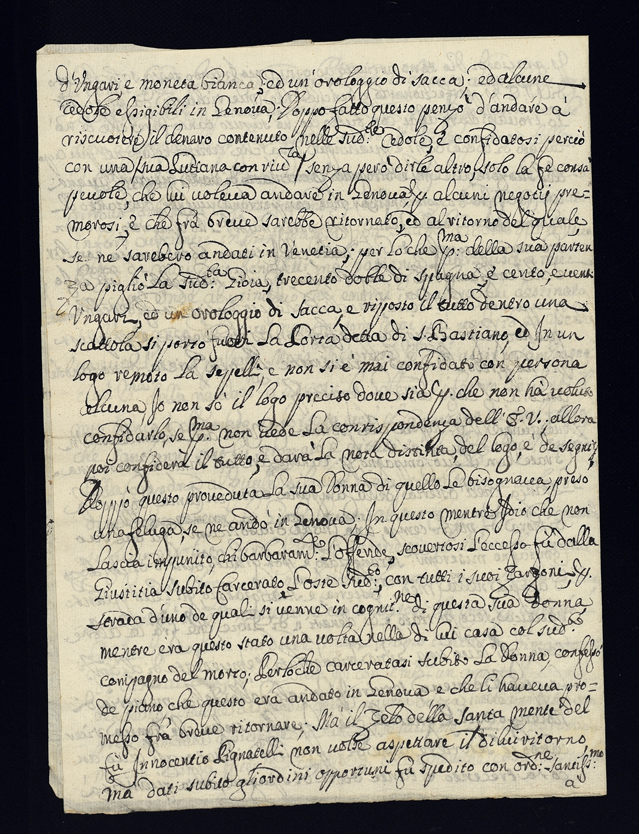 d'Ungari e moneta bianca; ed un'orologgio di sacca; ed alcune
cedole esigibili in Genova: Doppo fatto questo penzò d'andare à
riscuotere il denaro contenuto nelle sud:te cedole, è confidatosi perciò
con una sua Putiana con vive senza però dirle altro, solo la fè consa
pevole, che lui voleva andare in Genova p. alcuni negotij pre=
morosi, è che frà breve sarebbe ritornato, ed al ritorno del quale
se ne sarebero andati in Venetia; per loche p:ma della sua parten
za pigliò la sud:ta Gioia, trecento doble di Spagna, è cento e vent
Ungari, ed un'orologgio di sacca e riposto il tutto dentro una
scattola si portò fuori la Porta detta di S. Bastiano, ed in un
logo remoto la sepellì, e non si è mai confidato con persona
alcuna Io non sò il logo preciso dove sia p. che non hà voluto
confidarlo, se p:ma non vede la corrispondenza dell' V., allora
poi confiderà il tutto, e darà la nota distinta del logo, e de segni;
Doppo questo proveduta la sua Donna di quello le bisognava preso
una feluga, se ne andò in Genova: In questo mentre Idio che non
lascia impunito chi barbaram:te l'offende, scovertosi l'eccesso fù dalla
Giustitia subito carcerato l'oste sud:to, con tutti i suoi Garzoni, p.
strada d'uno de quali si venne in cognit:ne di questa sua Donna
mentre era questo stato una volta nella di lui casa col sud:to
compagno del morto; Perloche carceratasi subito la Donna, confessò
de piano che questo era andato in Genova e che li haveva pro=
messo frà breve ritornare; Mà il Zelo della Santa mente del
fù Innocentio Pignatelli non volse aspettare il di lui ritorno
mà dati subito gli ordini opportuni fù spedito con ord:ne Santiss:mo
a